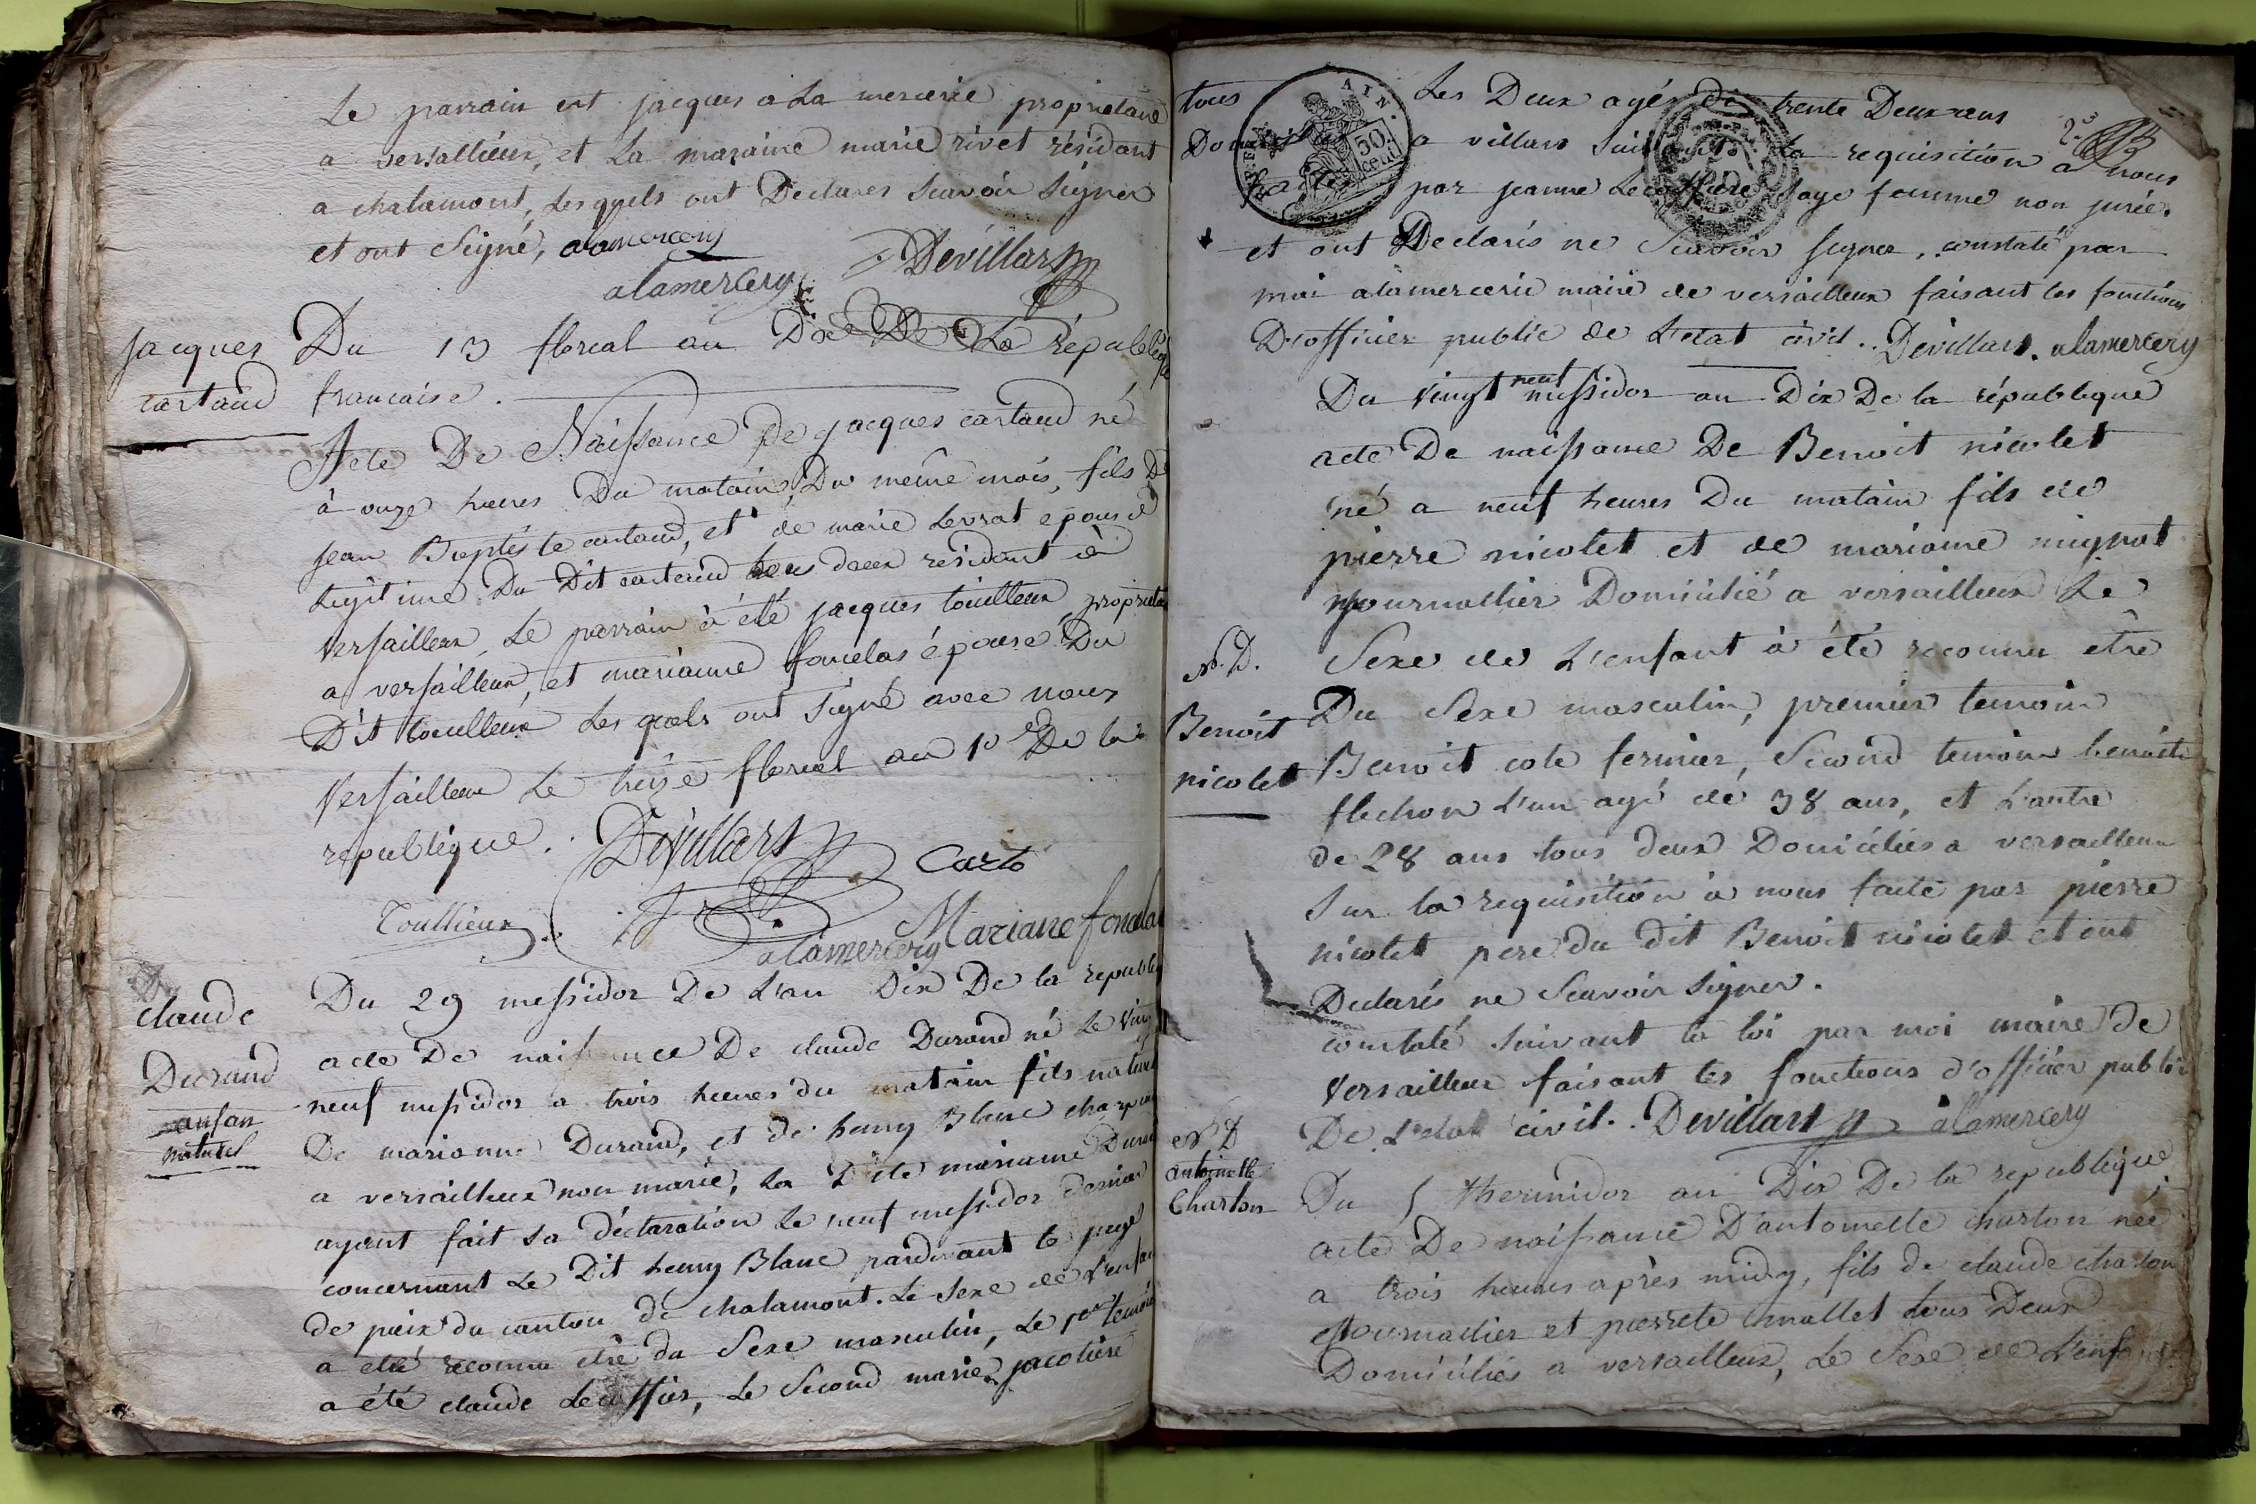 Le parrain est jacques a La mercerie proprietaire
a versallieux, et La maraine marie rivet résidant
a chalamont, Lesquels ont Declarés scavoir signer
et ont signé, alamercery
alamercery Devillars
jacques
cartaud
Du 13 floreal an Dix De La républiq
francaise.
Acte De Naissance de jacques cartaud né
à onze heures Du matain, Du même mois, fils De
jean Baptiste cartaud, et de marie Levrat epouse
Legitime Du Dit cartaud tous deux résidant à
versailleux, Le parrain à été jacques touilleux propriéta
a versailleux, et marianne fonclas épouse Du
Dit touilleux Les quels ont signé avec nous
Versailleux Le treize floreal an 10 De la
republique. Devillars
Carto
Toullieux
alamercery Mariane foncla
claude
Durand
enfan
naturel
Du 29 messidor De L'an Dix De la republi
acte De naissance De claude Durand né Le vin
neuf messidor a trois heures du matain fils nature
De marianne Durand, et de henry Blanc charpen
a versailleux non marié, La Dite marianne Duran
ayant fait sa déclaration Le neuf messidor dernier
concernant Le Dit henry Blanc pardevant le juge
de paix du canton de chalamont. Le sexe de L'enfan
a été reconnu etre du sexe masculin, Le 1er temoin
a été claude Lecuffier, Le second marie jacotiere
AIN.
50
cent
tous Les Deux agés de trente Deux ans
a villars suivant La requisition a nous
faite par jeanne sage femme non jurée.
et ont Declarés ne scavoir signer, constaté par
moi alamercerie maire de versailleux faisant les fonctions
D'officier public de L'etat civil. Devillars. alamercery
Du vingt neuf messidor an Dix De la république
acte De naissance De Benoit nicolet
né a neuf heures Du matain fils de
pierre nicolet et de marianne mignot
journallier Domicilié a versailleux Le
N.D.
Benoit
nicolet
Sexe de L'enfant à été reconnu etre
Du Sexe masculin, premier temoin
Benoit cote fermier, second temoin benoite
flechon L'un agé de 38 ans, et L'autre
de 28 ans tous deux Domiciliés a versailleux
sur la requisition a nous faite par pierre
nicolet pere du dit Benoit nicolet et ont
Declarés ne scavoir signer.
constaté suivant la loi par moi maire De
Versailleux faisant les fonctions d'officier public
De L'etat civil. Devillars alamercery
N.D
antoinette
Charton
Du 5 thermidor an Dix De la republique
acte De naissance D'antoinette charton née
a trois heures après midy, fils de claude charton
journallier et pierrete mallet tous Deux
Domiciliés a versailleux, Le Sexe de L'enfant